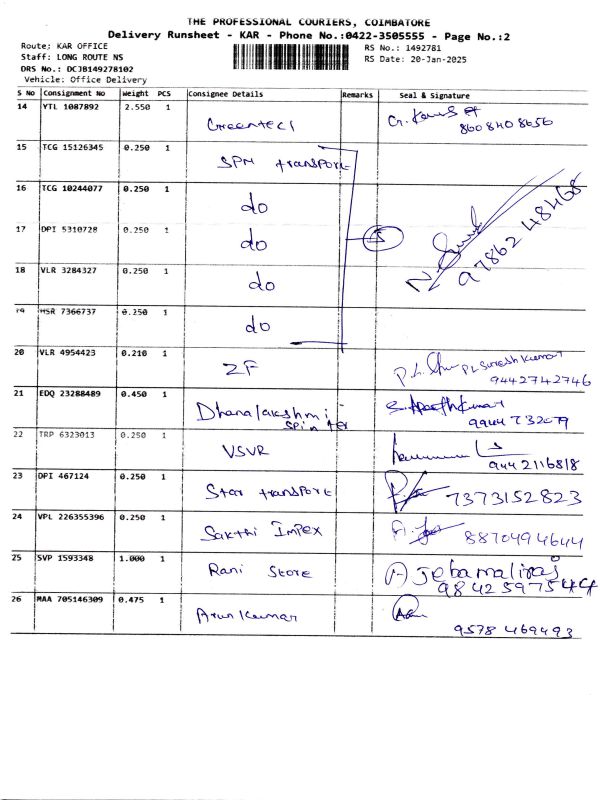 THE PROFESSIONAL COURIERS, COIMBATORE
Delivery Runsheet - KAR - Phone No.:0422-3505555 - Page No.:2
Route: KAR OFFICE
RS No.: 1492781
Staff: LONG ROUTE NS
RS Date: 20-Jan-2025
DRS No.: DCJB149278102
Vehicle: Office Delivery
S No Consignment No Weight PCS Consignee Details Remarks Seal & Signature
14 YTL 1087892 2.550 1 Greentecl 8608408656
15 TCG 15126345 0.250 1 SPM transport
16 TCG 10244077 0.250 1 do
17 DPI 5310728 0.250 1 do 5 97862 48468
18 VLR 3284327 0.250 1 do
19 MSR 7366737 0.250 1 do
20 VLR 4954423 0.210 1 ZF PL Suresh Kumar
9442742746
21 EDQ 23288489 0.450 1 Dhanalakshmi
Spinter 9944732079
22 TRP 6323013 0.250 1 VSVR 9442116818
23 DPI 467124 0.250 1 Star transport 7373152823
24 VPL 226355396 0.250 1 Sakthi Impex 8870494644
25 SVP 1593348 1.000 1 Rani Store A Jebamaliraj
9842597544
26 MAA 705146309 0.475 1 Arun Kumar
9578 469493